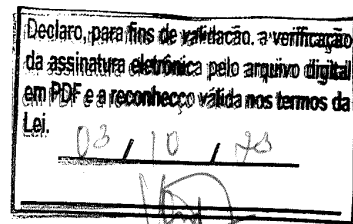 Declaro, para fins de validação, a verificação
da assinatura eletrônica pelo arquivo digital
em PDF e a reconheço válida nos termos da
Lei.
03 / 10 / 23